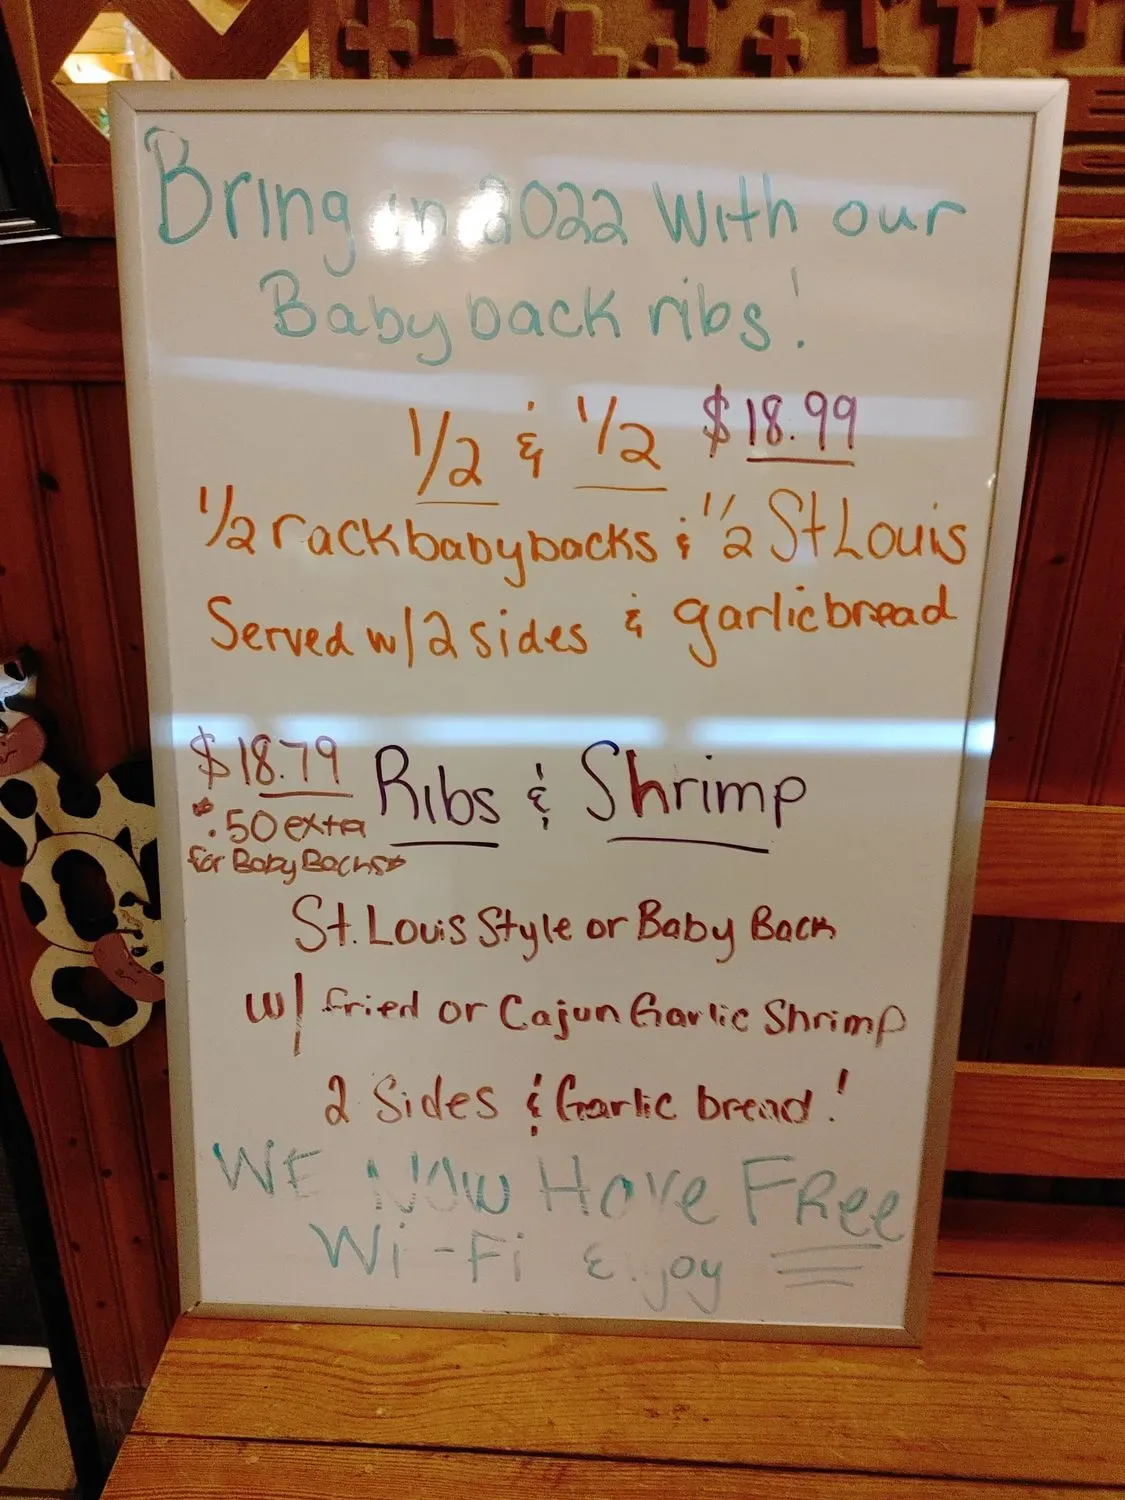 Bring in 2022 With our
Baby back ribs!
1/2 & 1/2 $18.99
1/2 rack babybacks & 1/2 St Louis
Served w/ 2 sides & garlic bread
$18.79 Ribs & Shrimp
*.50 extra
for Baby Backs*
St. Louis Style or Baby Back
w/ fried or Cajun Garlic Shrimp
2 Sides & Garlic bread!
WE NOW Have FRee
Wi-Fi Enjoy